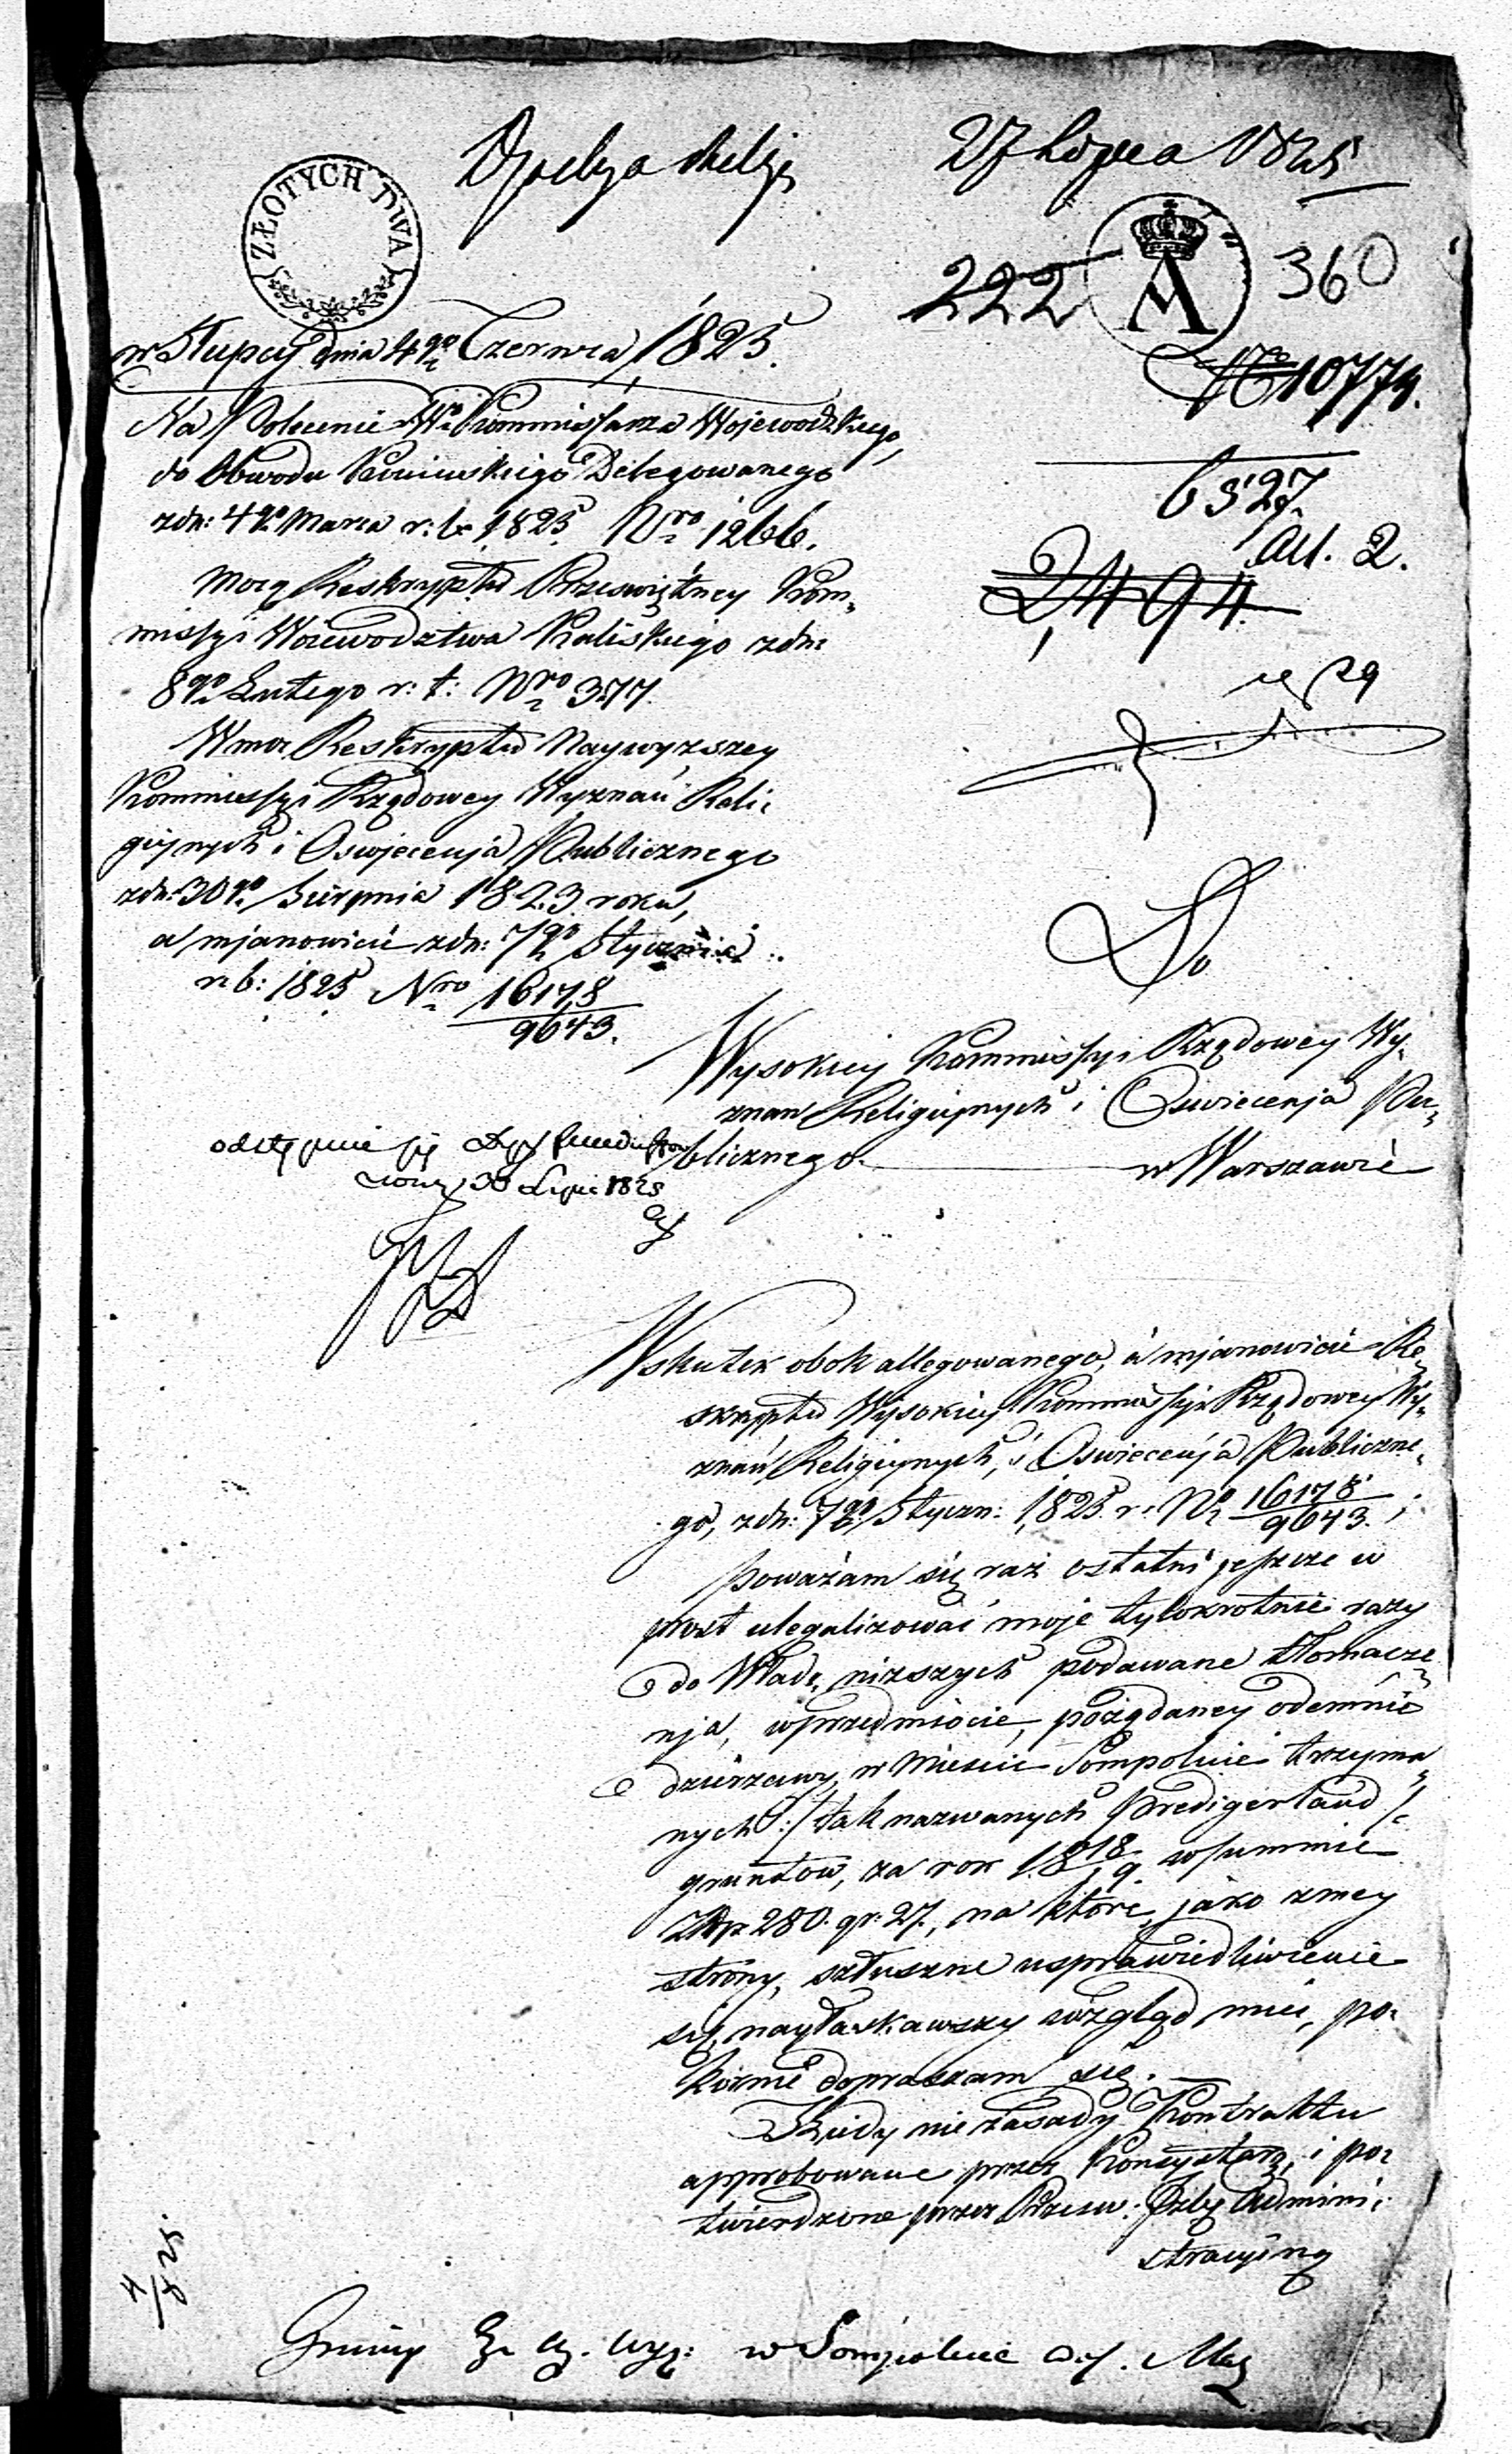 27 Lipca 1825
ZŁOTYCH DWA
222
A
360
No 10774.
w Słupcy dnia 4go Czerwca 1825.
Na Polecenie Wo Kommissarza Wojewodzkiego,
do Obwodu Konińskiego Delegowanego
zdn: 4go Marca r: b: 1825. Nro 1266.
6527.
Alt. 2.
2494.
Mocą Reskryptu Przeświętney Kom-
missyi Woiewodztwa Kaliskiego zdn:
8go Lutego r: t: Nro 377.
Wmoc Reskryptu Naywyższey
Kommissyi Rządowey Wyznań Reli-
giynych i Oswjecenja Publicznego
zdn: 30go Sierpnia 1823. roku,
a mjanowicie zdn: 7go Stycznia
r: b: 1825 Nro 16178/9643.
Do
Wysokiey Kommissyi Rządowey Wy-
znan Religiynych i Oswiecenja Pu-
blicznego.
w Warszawie
odstępuie się
30 Lipca 1825
Wskutek obok allegowanego, a mjanowicie Re-
skryptu Wysokiey Kommissyi Rządowey Wy-
znań Religiynych, i Oswiecenja Publiczne-
go, zdn: 7go Styczn: 1825. r. No 16178/9643.;
poważam się raz ostatni jeszcze w
prost ulegalizować moje tylokrotnie razy
do Władz niższych podawane tłomacze-
nja, wprzedmiocie, pożądaney odemnie
dzierzawy, w Mieście Sompolnie trzyma-
nych :/ tak nazwanych Predigerland /:
gruntów, za rok 1818/19. wsummie
Złp 280. gr: 27., na które, jako zmey
strony, słuszne usprawiedliwienie
się, nayłaskawszy wzgląd mieć, po-
kornie dopraszam się.
Kiedy nie zasady Kontraktu
approbowane przez Konsystorz, i po-
twierdzone przez Przesw: Izbę Admini-
stracyiną
4/8 25.
Gminy w Sompolnie